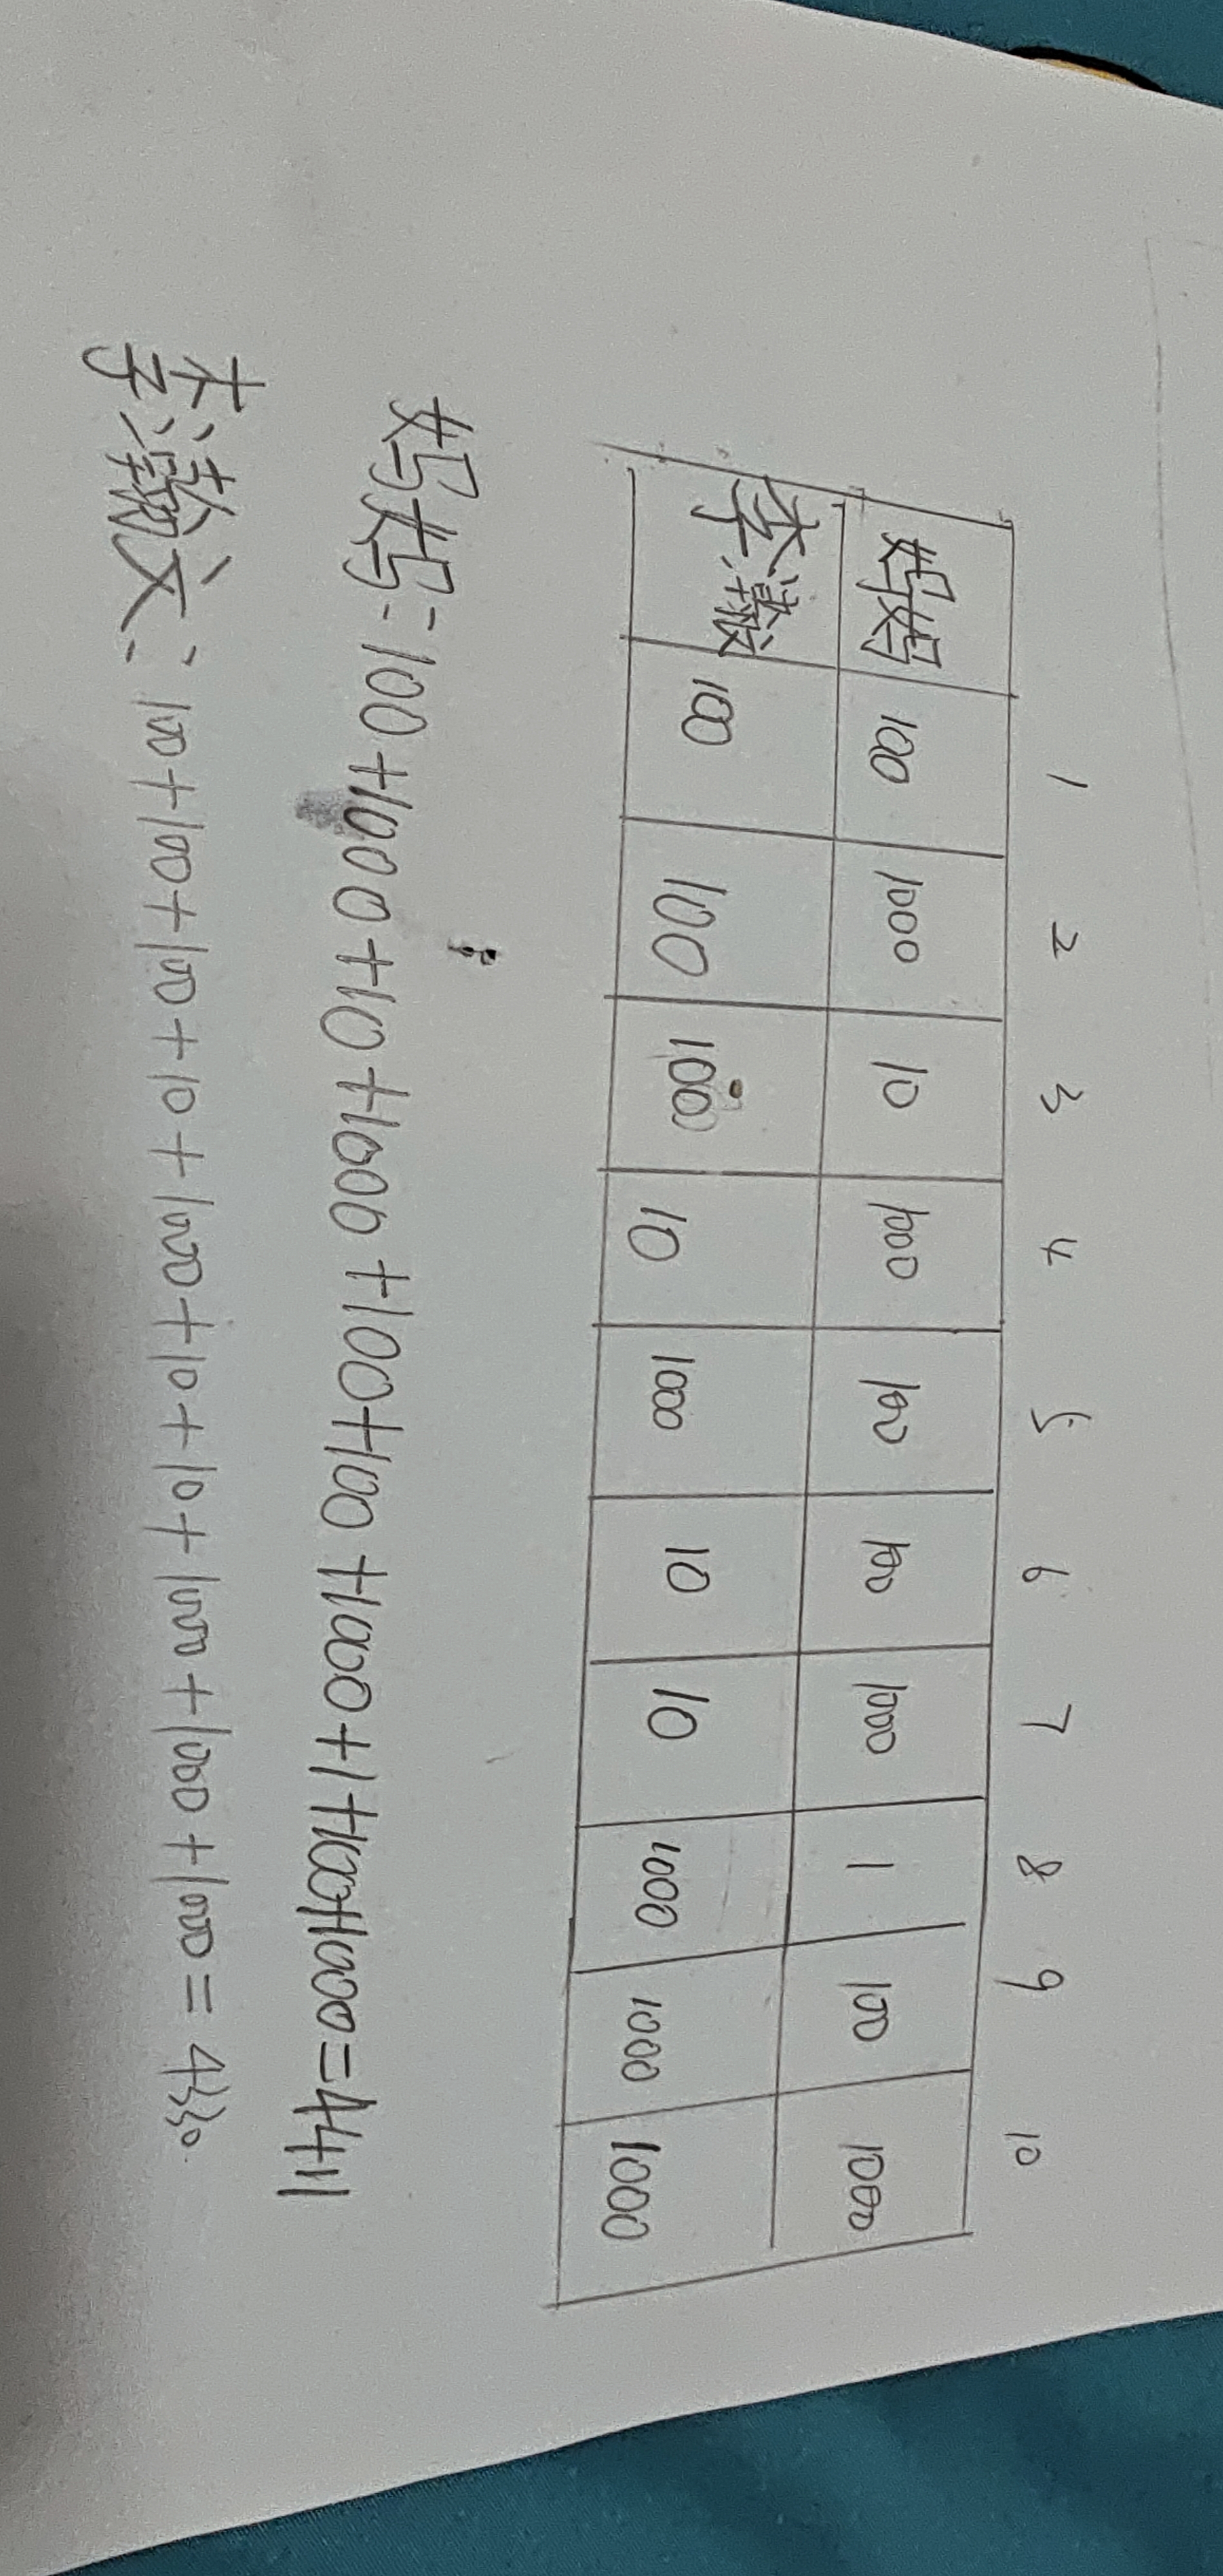 1 2 3 4 5 6 7 8 9 10
妈妈 100 1000 10 1000 100 100 1000 1 100 1000
李瀚 100 100 1000 10 1000 10 10 1000 1000 1000
妈妈:100+1000+10+1000+100+100+1000+1+100+1000=4411
李瀚文:100+100+100+10+1000+10+10+1000+1000+1000=4330